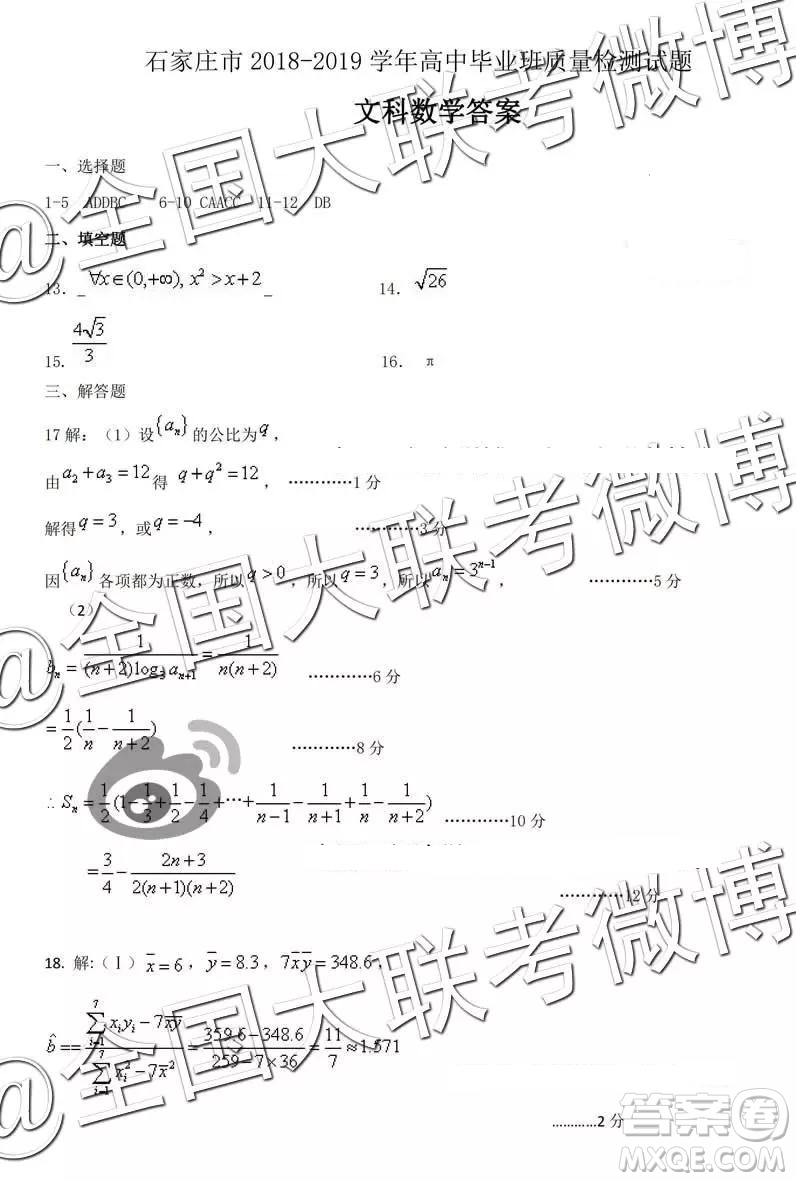 石家庄市 2018-2019 学年高中毕业班质量检测试题
文科数学答案
一、选择题
1-5 ADDBC 6-10 CAACC 11-12 DB
二、填空题
13. _∀x∈(0,+∞), x²>x+2_ 14. √26
15. 4√3/3 16. π
三、解答题
17解：（1）设{aₙ}的公比为q，
由a₂+a₃=12得 q+q²=12， …………1分
解得q=3，或q=-4， …………3分
因{aₙ}各项都为正数，所以q>0，所以q=3，所以aₙ=3ⁿ⁻¹， …………5分
（2）
bₙ=1/((n+2)log₃aₙ₊₁)=1/(n(n+2)) …………6分
=1/2(1/n-1/(n+2)) …………8分
∴Sₙ=1/2(1-1/3+1/2-1/4+…+1/(n-1)-1/(n+1)+1/n-1/(n+2)) …………10分
=3/4-(2n+3)/(2(n+1)(n+2)) …………12分
18. 解:(Ⅰ) x̄=6，ȳ=8.3，7x̄ȳ=348.6，
b̂==(∑ᵢ₌₁⁷xᵢyᵢ-7x̄ȳ)/(∑ᵢ₌₁⁷xᵢ²-7x̄²)=(359.6-348.6)/(259-7×36)=11/7≈1.571
…………2分
@全国大联考微博
@全国大联考微博
@全国大联考微博
答案卷
MXQE.COM